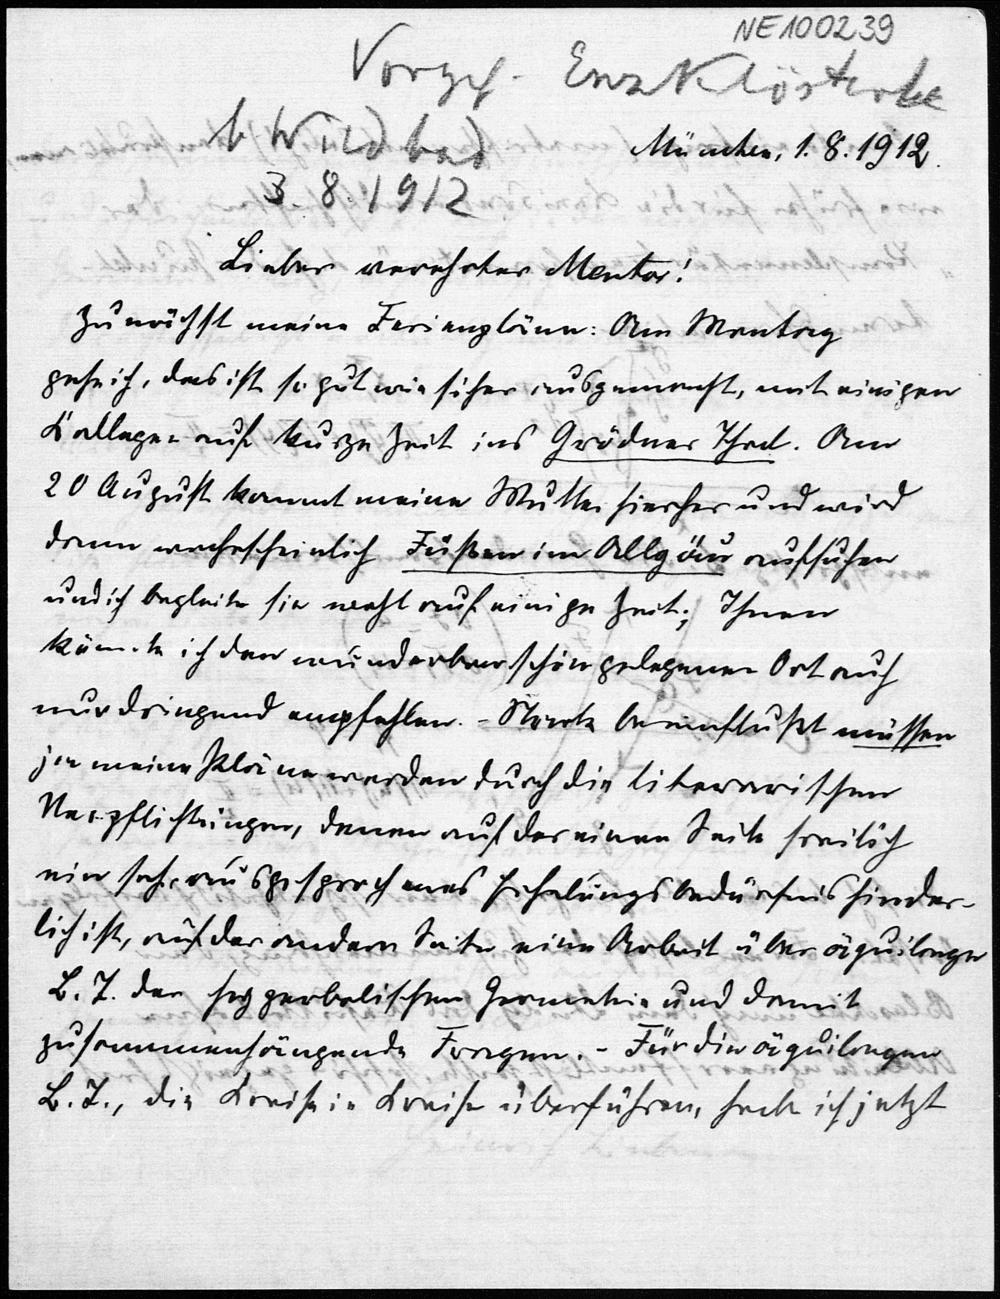 NE100239
Vorgef. Enzklösterle
b Wildbad
3 8. 1912
München, 1. 8. 1912.
Lieber verehrter Mentor!
Zunächst meine Ferienpläne: Am Montag
gehe ich, das ist so gut wie sicher ausgemacht, mit einigen
Kollegen auf kurze Zeit ins Grödner Thal. Am
20 August kommt meine Mutter hierher und wird
dann wahrscheinlich Füßen im Allgäu aufsuchen
und ich begleite sie wohl auf einige Zeit; Ihnen
könnte ich den wunderbar schön gelegenen Ort auch
nur dringend empfehlen. – Stark beeinflußt müssen
ja meine Pläne werden durch die literarischen
Verpflichtungen, denen auf der einen Seite freilich
ein sehr ausgesprochenes Erholungsbedürfnis hinder-
lich ist, auf der andern Seite eine Arbeit über äquilonge
B. T. der hyperbolischen Geometrie und damit
zusammenhängende Fragen. – Für die äquilongen
B. T., die Kreise in Kreise überführen, habe ich jetzt